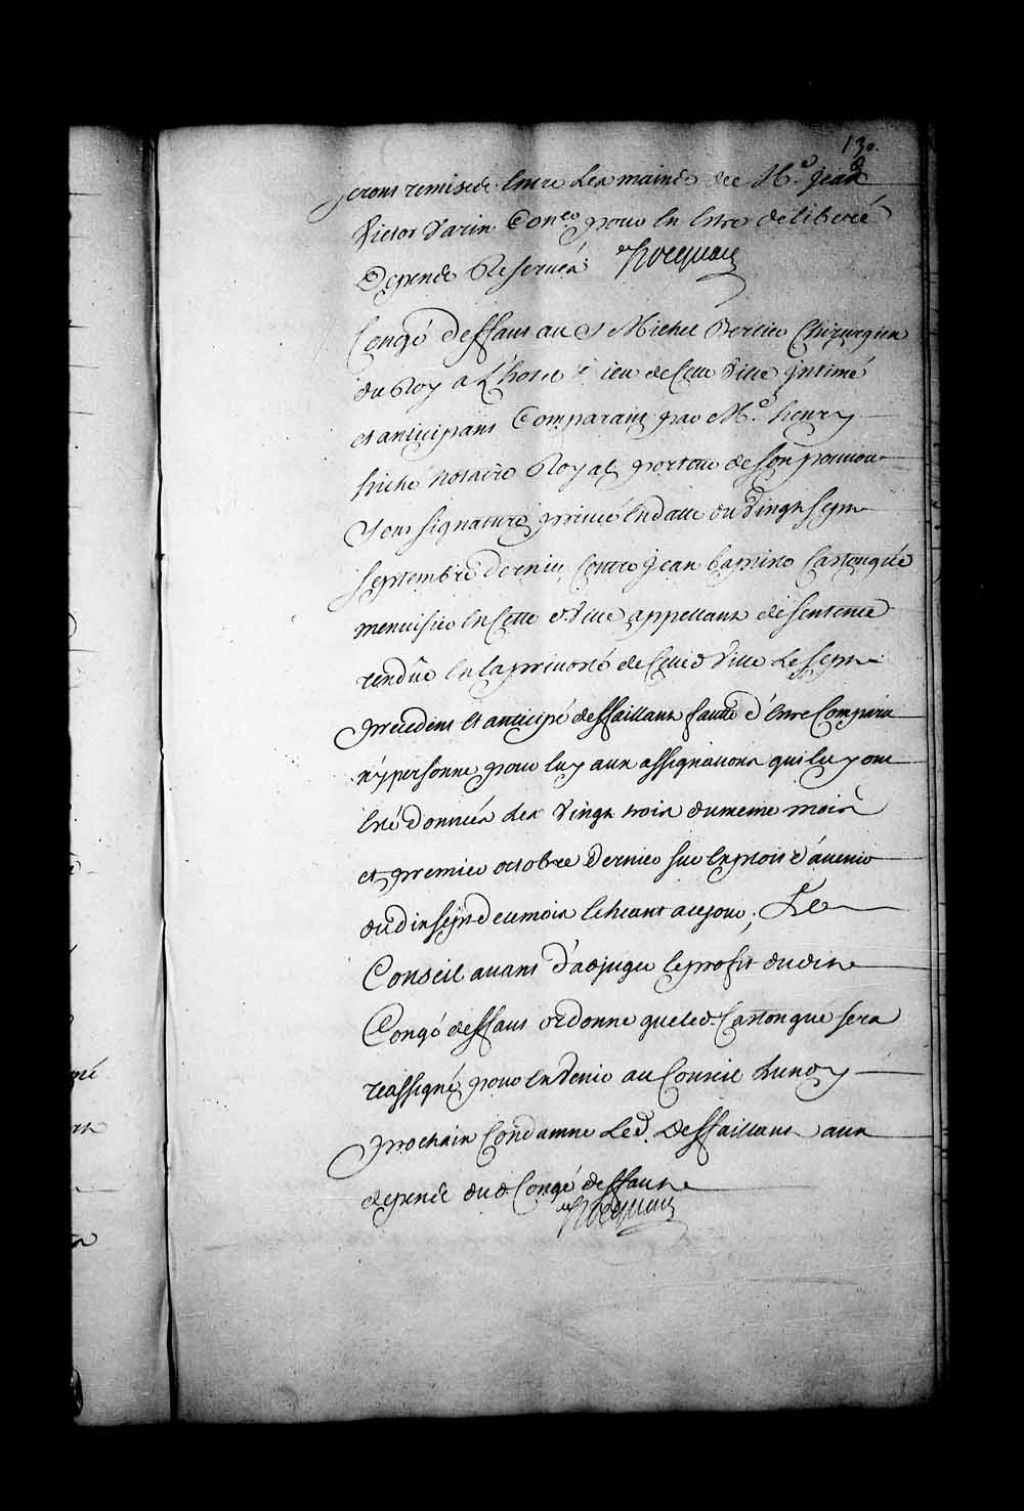 130.
seront remises Entre Les mains de Me. Jean
Victor Varin Coner pour En Estre deliberé
Depens Reservés Hocquart
Congé deffaut au Sr Michel Bertier Chirurgien
du Roy a L'hotel dieu de Cette Ville Intimé
et anticipant Comparant par Me. henry
hiché notaire Royal porteur de son pouvoir
sous signature privée En datte du Vingt sept
septembre dernier, Contre Jean baptiste Castongüé
menuisier En Cette d. Ville appellant de sentence
rendüe En la prevosté de Cette d Ville Le sept
precedent Et anticipé deffaillant faute d'Estre Comparu
n'y personne pour luy aux assignations qui luy ont
Esté données Les Vingt trois du meme mois
et premier octobre dernier sur Exploit d'avenir
du dix sept du mois Echeant a ce jour; Le
Conseil avant d'adjuger le profit dudit
Congé deffaut ordonne que led. Castongué sera
reassigné pour En Venir au Conseil Lundy
prochain Condamne Led. deffaillant aux
depens dud. Congé deffaut
Hocquart